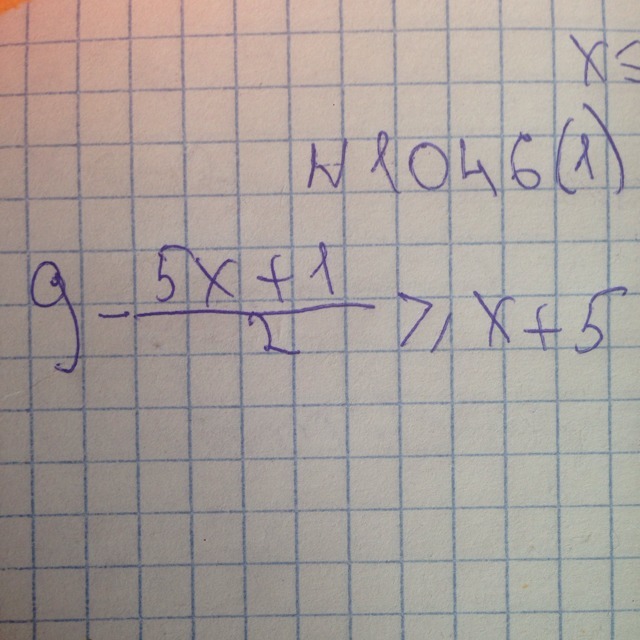 x=
N1046(1)
9 - \frac{5x+1}{2} ⩾ x+5